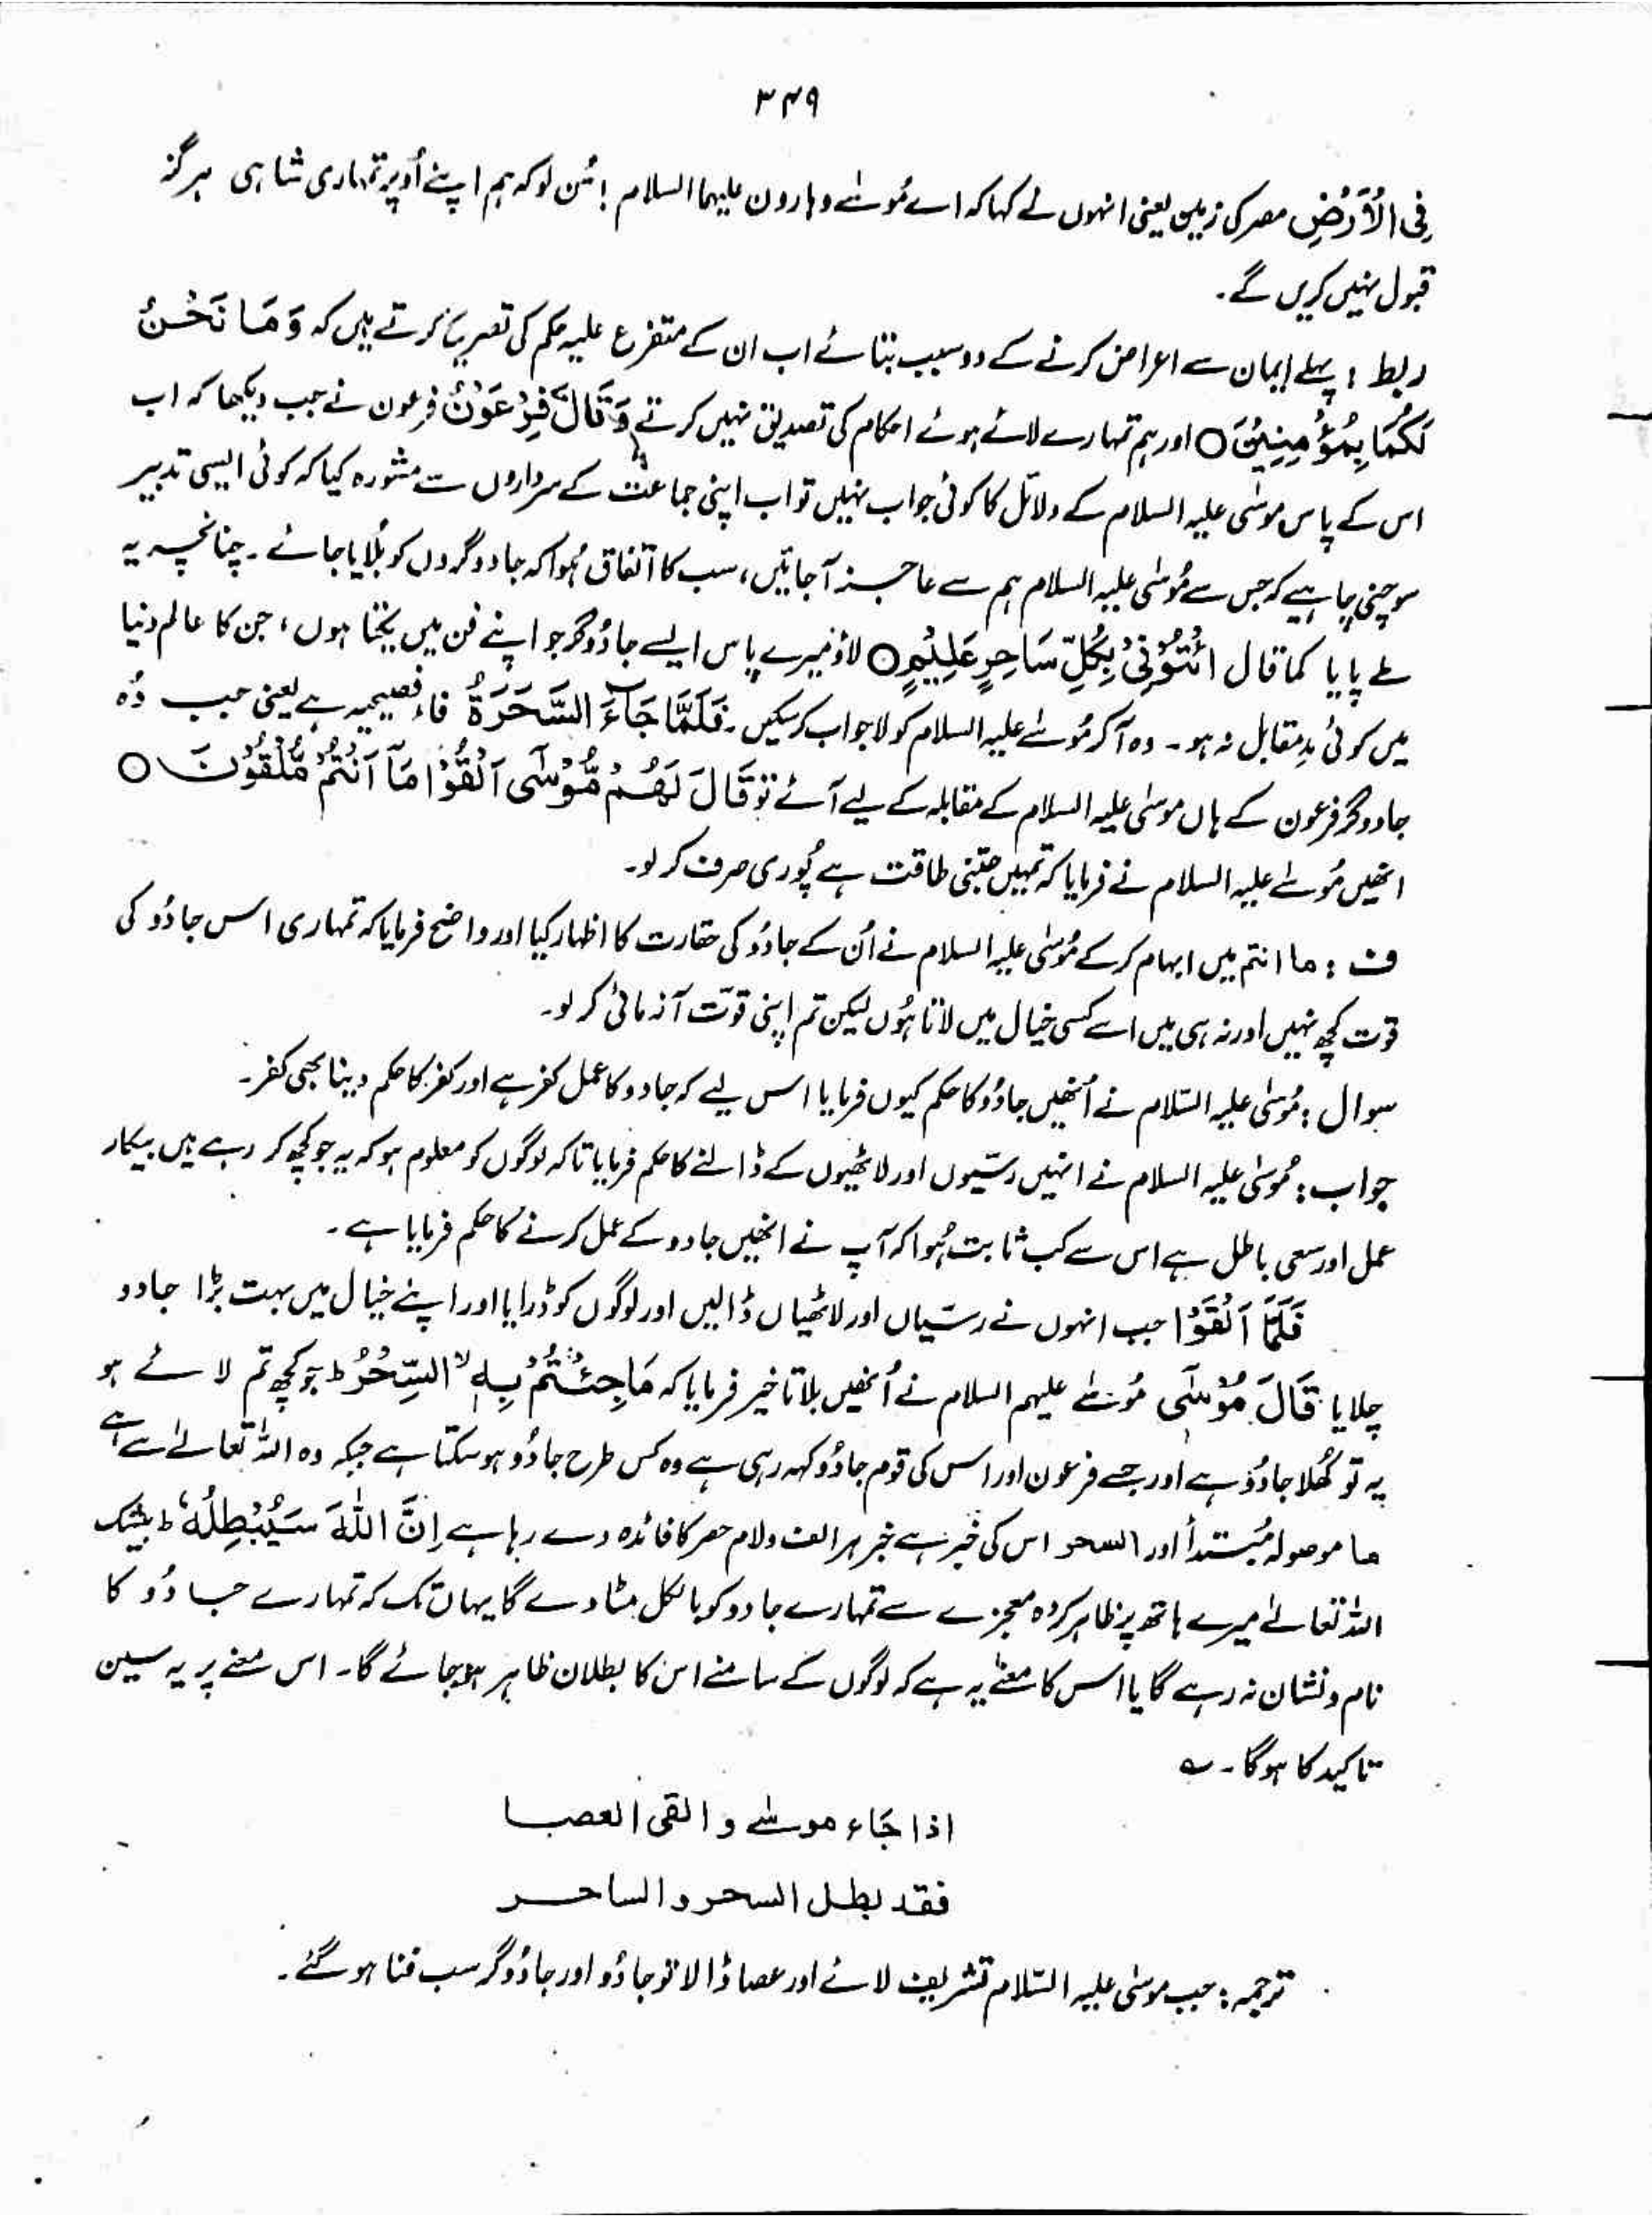 ۳۴۹
فِی الْاَرْضِ مصر کی زمین یعنی انہوں نے کہا کہ اے مُوسٰے و ہارون علیہما السلام ! سُن لو کہ ہم اپنے اُوپر تمہاری شاہی ہرگز
قبول نہیں کریں گے۔
ربط : پہلے ایمان سے اعراض کرنے کے دو سبب بتائے اب ان کے متفرع علیہ حکم کی تصریح کرتے ہیں کہ وَمَا نَحْنُ
لَكُمَا بِمُؤْمِنِيْنَ○ اور ہم تمہارے لائے ہوئے احکام کی تصدیق نہیں کرتے وَقَالَ فِرْعَوْنُ فرعون نے جب دیکھا کہ اب
اس کے پاس موسٰی علیہ السلام کے دلائل کا کوئی جواب نہیں تو اب اپنی جماعت کے سرداروں سے مشورہ کیا کہ کوئی ایسی تدبیر
سوچنی چاہیے کہ جس سے مُوسٰی علیہ السلام ہم سے عاجز آجائیں، سب کا اتفاق ہُوا کہ جادوگروں کو بُلایا جائے۔ چنانچہ یہ
طے پایا کما قال ائْتُوْنِیْ بِكُلِّ سَاحِرٍ عَلِيْمٍ○ لاؤ میرے پاس ایسے جادُوگر جو اپنے فن میں یکتا ہوں، جن کا عالمِ دنیا
میں کوئی مدِ مقابل نہ ہو۔ وہ آکر مُوسٰے علیہ السلام کو لاجواب کرسکیں۔ فَلَمَّا جَآءَ السَّحَرَةُ فاء فصیحیہ ہے یعنی جب وُہ
جادوگر فرعون کے ہاں موسٰی علیہ السلام کے مقابلہ کے لیے آئے تو قَالَ لَهُمْ مُّوْسٰٓى اَلْقُوْا مَآ اَنْتُمْ مُّلْقُوْنَ ○
انھیں مُوسٰے علیہ السلام نے فرمایا کہ تمہیں جتنی طاقت ہے پُوری صرف کر لو۔
ف : ما انتم میں ابہام کرکے مُوسٰی علیہ السلام نے اُن کے جادُو کی حقارت کا اظہار کیا اور واضح فرمایا کہ تمہاری اس جادُو کی
قوت کچھ نہیں اور نہ ہی میں اسے کسی خیال میں لاتا ہُوں لیکن تم اپنی قوّت آزمائی کرلو۔
سوال : مُوسٰی علیہ السّلام نے اُنھیں جادُو کا حکم کیوں فرمایا اس لیے کہ جادو کا عمل کفر ہے اور کفر کا حکم دینا بھی کفر۔
جواب : مُوسٰی علیہ السلام نے انہیں رسّیوں اور لاٹھیوں کے ڈالنے کا حکم فرمایا تاکہ لوگوں کو معلوم ہو کہ یہ جو کچھ کر رہے ہیں بیکار
عمل اور سعی باطل ہے اس سے کب ثابت ہُوا کہ آپ نے انھیں جادو کے عمل کرنے کا حکم فرمایا ہے۔
فَلَمَّآ اَلْقَوْا جب انہوں نے رسّیاں اور لاٹھیاں ڈالیں اور لوگوں کو ڈرایا اور اپنے خیال میں بہت بڑا جادو
چلایا قَالَ مُوْسٰٓى مُوسٰے علیہم السلام نے اُنھیں بلا تاخیر فرمایا کہ مَا جِئْتُمْ بِهِ ۙ السِّحْرُ ط جو کچھ تم لائے ہو
یہ تو کُھلا جادُو ہے اور جسے فرعون اور اس کی قوم جادُو کہہ رہی ہے وہ کس طرح جادُو ہو سکتا ہے جبکہ وہ اللہ تعالیٰ سے ہے
ما موصولہ مُبتدأ اور السحر اس کی خبر ہے خبر پر الف و لام حصر کا فائدہ دے رہا ہے اِنَّ اللّٰهَ سَيُبْطِلُهٗ ط بیشک
اللہ تعالےٰ میرے ہاتھ پر ظاہر کردہ معجزے سے تمہارے جادو کو بالکل مٹا دے گا یہاں تک کہ تمہارے جادُو کا
نام و نشان نہ رہے گا یا اس کا معنے یہ ہے کہ لوگوں کے سامنے اس کا بطلان ظاہر ہو جائے گا۔ اس معنے پر یہ سین
تاکید کا ہوگا۔ ؎
اذا جَاء موسٰے و القی العصا
فقد بطل السحر و الساحر
ترجمہ : جب موسٰی علیہ السّلام تشریف لائے اور عصا ڈالا تو جادُو اور جادُوگر سب فنا ہوگئے۔